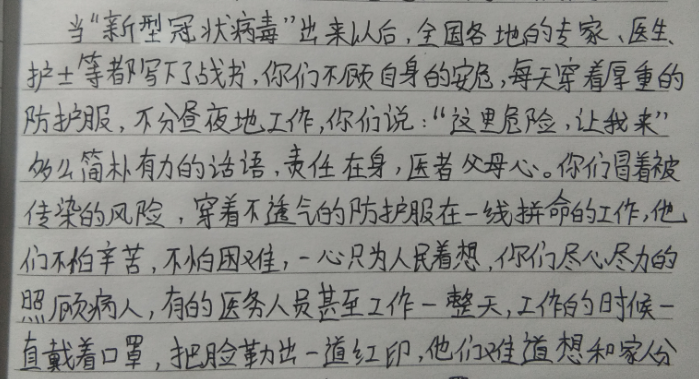 当“新型冠状病毒”出来以后，全国各地的专家、医生、
护士等都写下了战书，你们不顾自身的安危，每天穿着厚重的
防护服，不分昼夜地工作，你们说：“这里危险，让我来”
多么简朴有力的话语，责任在身，医者父母心。你们冒着被
传染的风险，穿着不透气的防护服在一线拼命的工作，他
们不怕辛苦，不怕困难，一心只为人民着想，你们尽心尽力的
照顾病人，有的医务人员甚至工作一整天，工作的时候一
直戴着口罩，把脸勒出一道红印，他们难道想和家人分